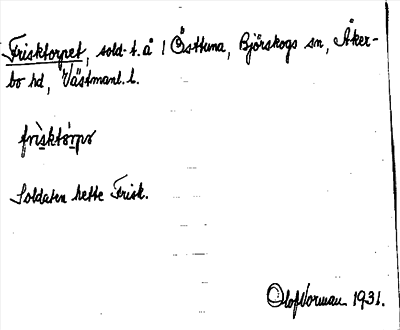 Frisktorpet, sold-t. å 1 Östtuna, Björskogs sn, Åker-
bo hd, Västmanl. l.
frisktårpə
Soldaten hette Frisk.
Olof Norman 1931.